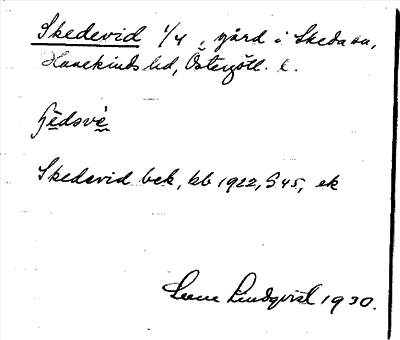 Skedevid 1/4, gård i Skeda sn,
Hanekinds hd, Östergötl. l.
Skedevid bck, kb 1922, S 45, ek
Sune Lindqvist 1930.